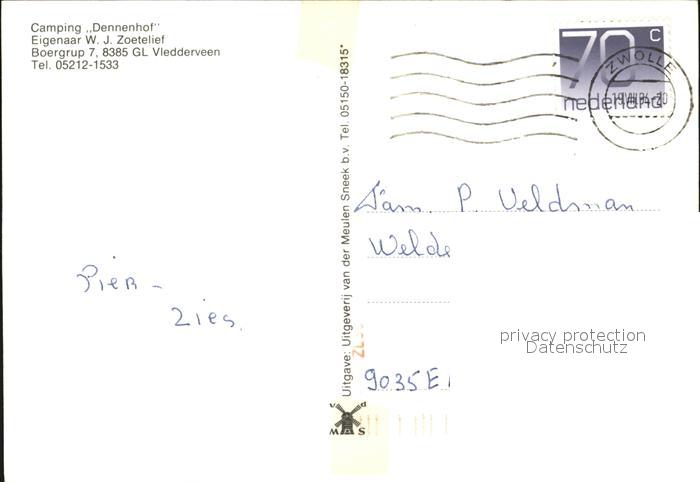 Camping „Dennenhof"
Eigenaar W. J. Zoetelief
Boergrup 7, 8385 GL Vledderveen
Tel. 05212-1533
Pier -
Zies
Uitgave: Uitgeverij van der Meulen Sneek b.v. Tel. 05150-18315*
70 c
nederland
ZWOLLE
Fam. P. Veldman
Welde
9035 E
privacy protection
Datenschutz
v d
M S